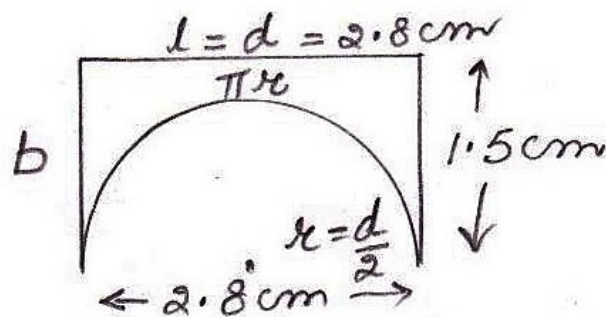 l = d = 2.8cm
πr
b
1.5cm
r = d/2
2.8cm